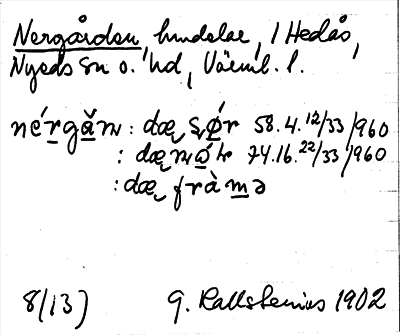 Nergården, hemdelar, 1 Hedås,
Nyeds sn o. hd, Värml. l.
nérgån: dæ sǿr 58.4.12/33/960
: dæ nǫ́r 74.16.22/33/960
: dæ fràmə
8/13) G. Kallstenius 1902